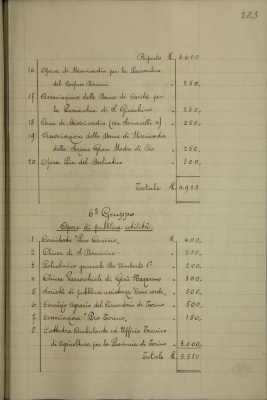 283
Riporto L. 3.600
16 Opera di Misericordia per la Parrocchia
del Corpus Domini " 250,
17 Associazione delle Dame di Carità per
la Parrocchia di S. Gioachino " 250,
18 Casa di Misericordia (via 4) " 250,
19 Associazione delle Dame di Misericordia
della Sezione Gran Madre di Dio " 250,
20 Opera Pia del Baliatico " 300,
Totale L. 4.900
6º Gruppo
Opere di pubblica utilità
1 Comitato "Pro L. 400,
2 Chiesa di S. Domenico " 500,
3 Policlinico generale Re Umberto Iº " 200,
4 Chiesa Parrocchiale di Gesù Nazareno " 300,
5 Società di pubblica assistenza Croce verde " 500,
6 Comizio Agrario del Circondario di Torino " 500,
7 Associazione "Pro Torino" " 150,
2 Cattedra Ambulante ed Ufficio Tecnico
di Agricoltura per la Provincia di Torino " 3.000,
Totale L. 5.550